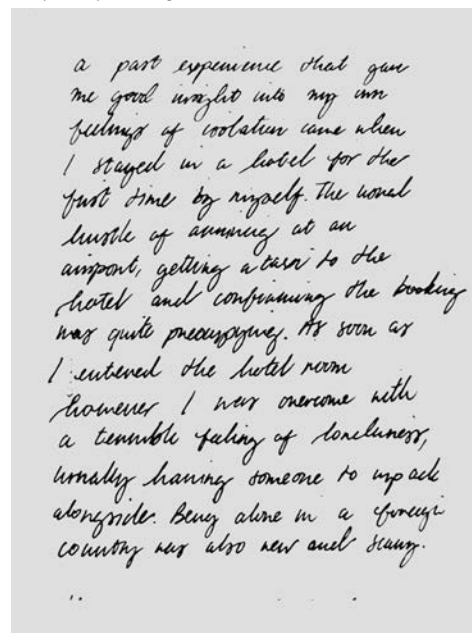 a past experience that gave
me good insight into my own
feelings of isolation came when
I stayed in a hotel for the
first time by myself. The usual
hustle of arriving at an
airport, getting a taxi to the
hotel and confirming the booking
was quite preoccupying. As soon as
I entered the hotel room
however I was overcome with
a terrible feeling of loneliness,
usually having someone to unpack
alongside. Being alone in a foreign
country was also new and scary.